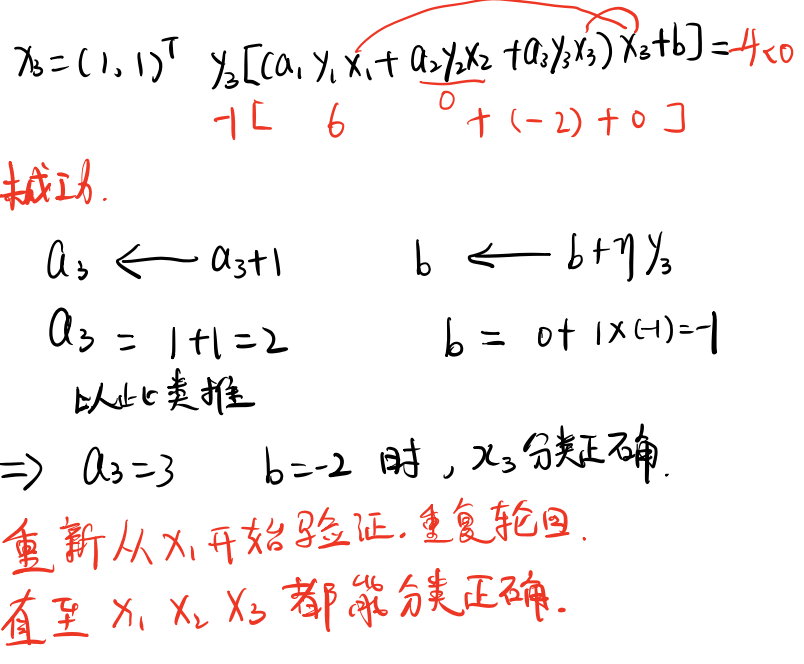 x₃=(1,1)ᵀ y₃[(a₁y₁x₁+a₂y₂x₂+a₃y₃x₃)x₃+b]=-4<0
-1[ 6 0 +(-2)+0]
未成功.
a₃ ← a₃+1 b ← b+ηy₃
a₃ = 1+1=2 b = 0+1×(-1)=-1
以此类推
⇒ a₃=3 b=-2 时, x₃分类正确.
重新从x₁开始验证.重复轮回.
直至 x₁ x₂ x₃ 都能分类正确.